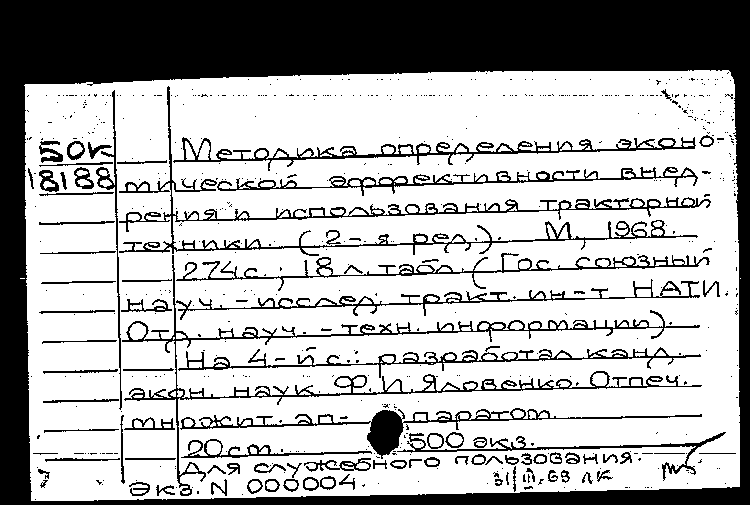 БОК Методика определения эконо-
18188 мической эффективности внед-
рения и использования тракторной
техники. (2-я ред.). М., 1968.
274 с.; 18 л. табл. (Гос. союзный
науч.-исслед. тракт. ин-т НАТИ.
Отд. науч.-техн. информации).
На 4-й с.: разработал канд.
экон. наук Ф.И. Яловенко. Отпеч.
множит. ап- паратом.
20 см. 500 экз.
Для служебного пользования.
Экз. N 000004. 31/III.69 ЛК